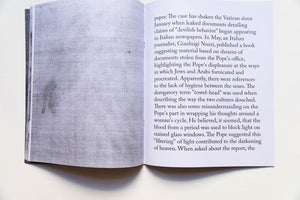 paper. The case has shaken the Vatican since
January when leaked documents detailing
claims of "devilish behavior" began appearing
in Italian newspapers. In May, an Italian
journalist, Gianluigi Nuzzi, published a book
suggesting material based on sheaves of
documents stolen from the Pope's office,
highlighting the Pope's displeasure at the ways
in which Jews and Arabs fornicated and
procreated. Apparently, there were references
to the lack of hygiene between the sexes. The
derogatory term "towel-head" was used when
describing the way the two cultures douched.
There was also some misunderstanding on the
Pope's part in wrapping his thoughts around a
woman's cycle. He believed, it seemed, that the
blood from a period was used to block light on
stained glass windows. The Pope suggested this
"filtering" of light contributed to the darkening
of heaven. When asked about the report, the